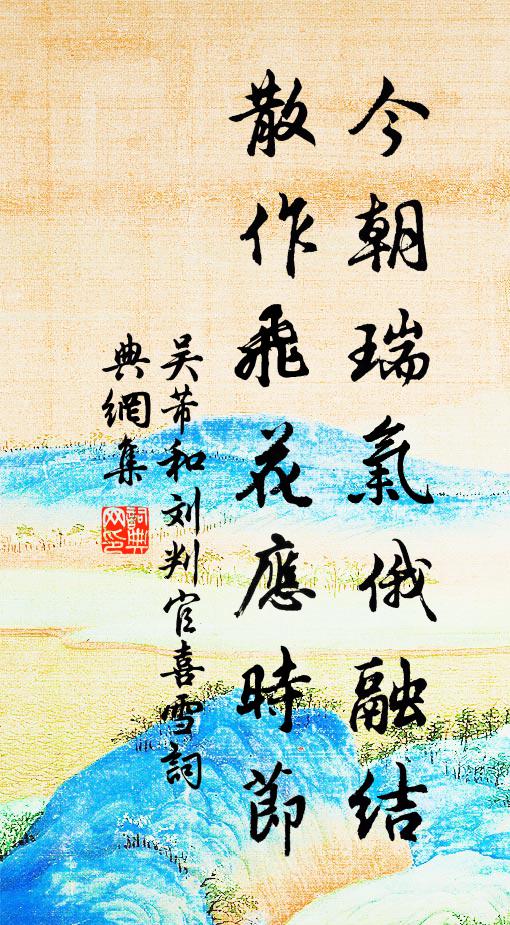 今朝瑞氣俄融结
散作飛花應時節
吴芾和刘判官喜雪詞
典網集
詞典
网印